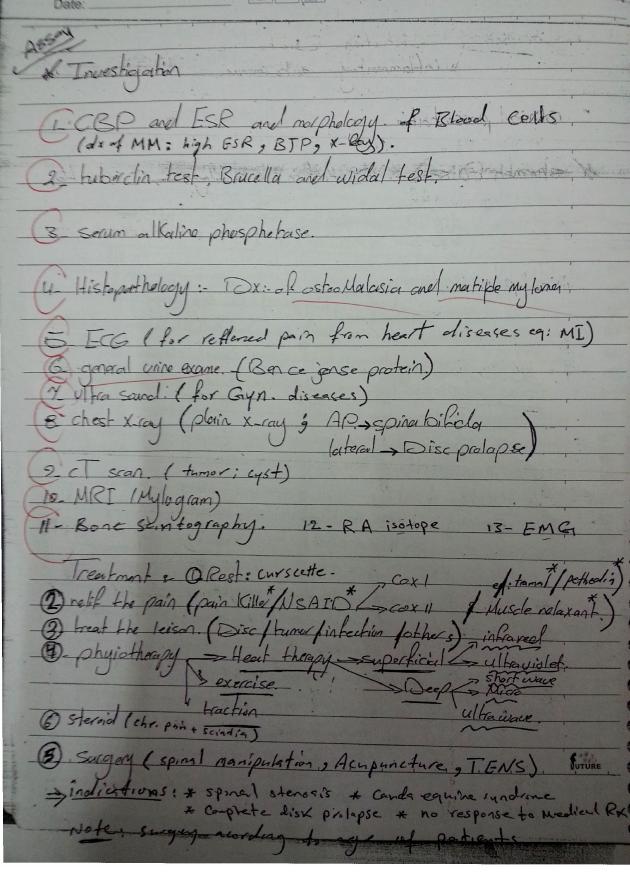 Date:
Assay
* Investigation
1- CBP and ESR and morphology of Blood Cells
(dx of MM: high ESR, BJP, x-Ray).
2- tuberclin test, Brucella and widal test.
3- serum alkaline phosphetase.
4- Histoparthology :- Dx:- of osteoMalasia and matiple myloma
5- ECG (for reffered pain from heart diseases eg: MI)
6- general urine exame. (Bence jense protein)
7- ultra sand: (for Gyn. diseases)
8- chest x-ray (plain x-ray ; AP → spinabifida
lateral → Disc prolapse)
9- CT scan. (tumor ; cyst)
10- MRI (Mylogram)
11- Bone scintography. 12- RA isotope 13- EMG
Treatment : ① Rest: curscette.
② relif the pain (pain killer*/NSAID* Cox I cox II / Muscle relaxant*)
③ treat the leison. (Disc/tumor/infection/others)
④ phyiotherapy → Heat therapy → superficial infrared ultraviolet
exercise. Deep short wave Micro
traction ultrawave.
⑥ steroid (chr. pain +
⑤ surgery (spinal manipulation, Acupuncture, TENS). FUTURE
⇒ indications: * spinal stenosis * Cauda equine syndrome
* complete disk prolapse * no response to Medical Rx
Note: surgery acording to age of patients